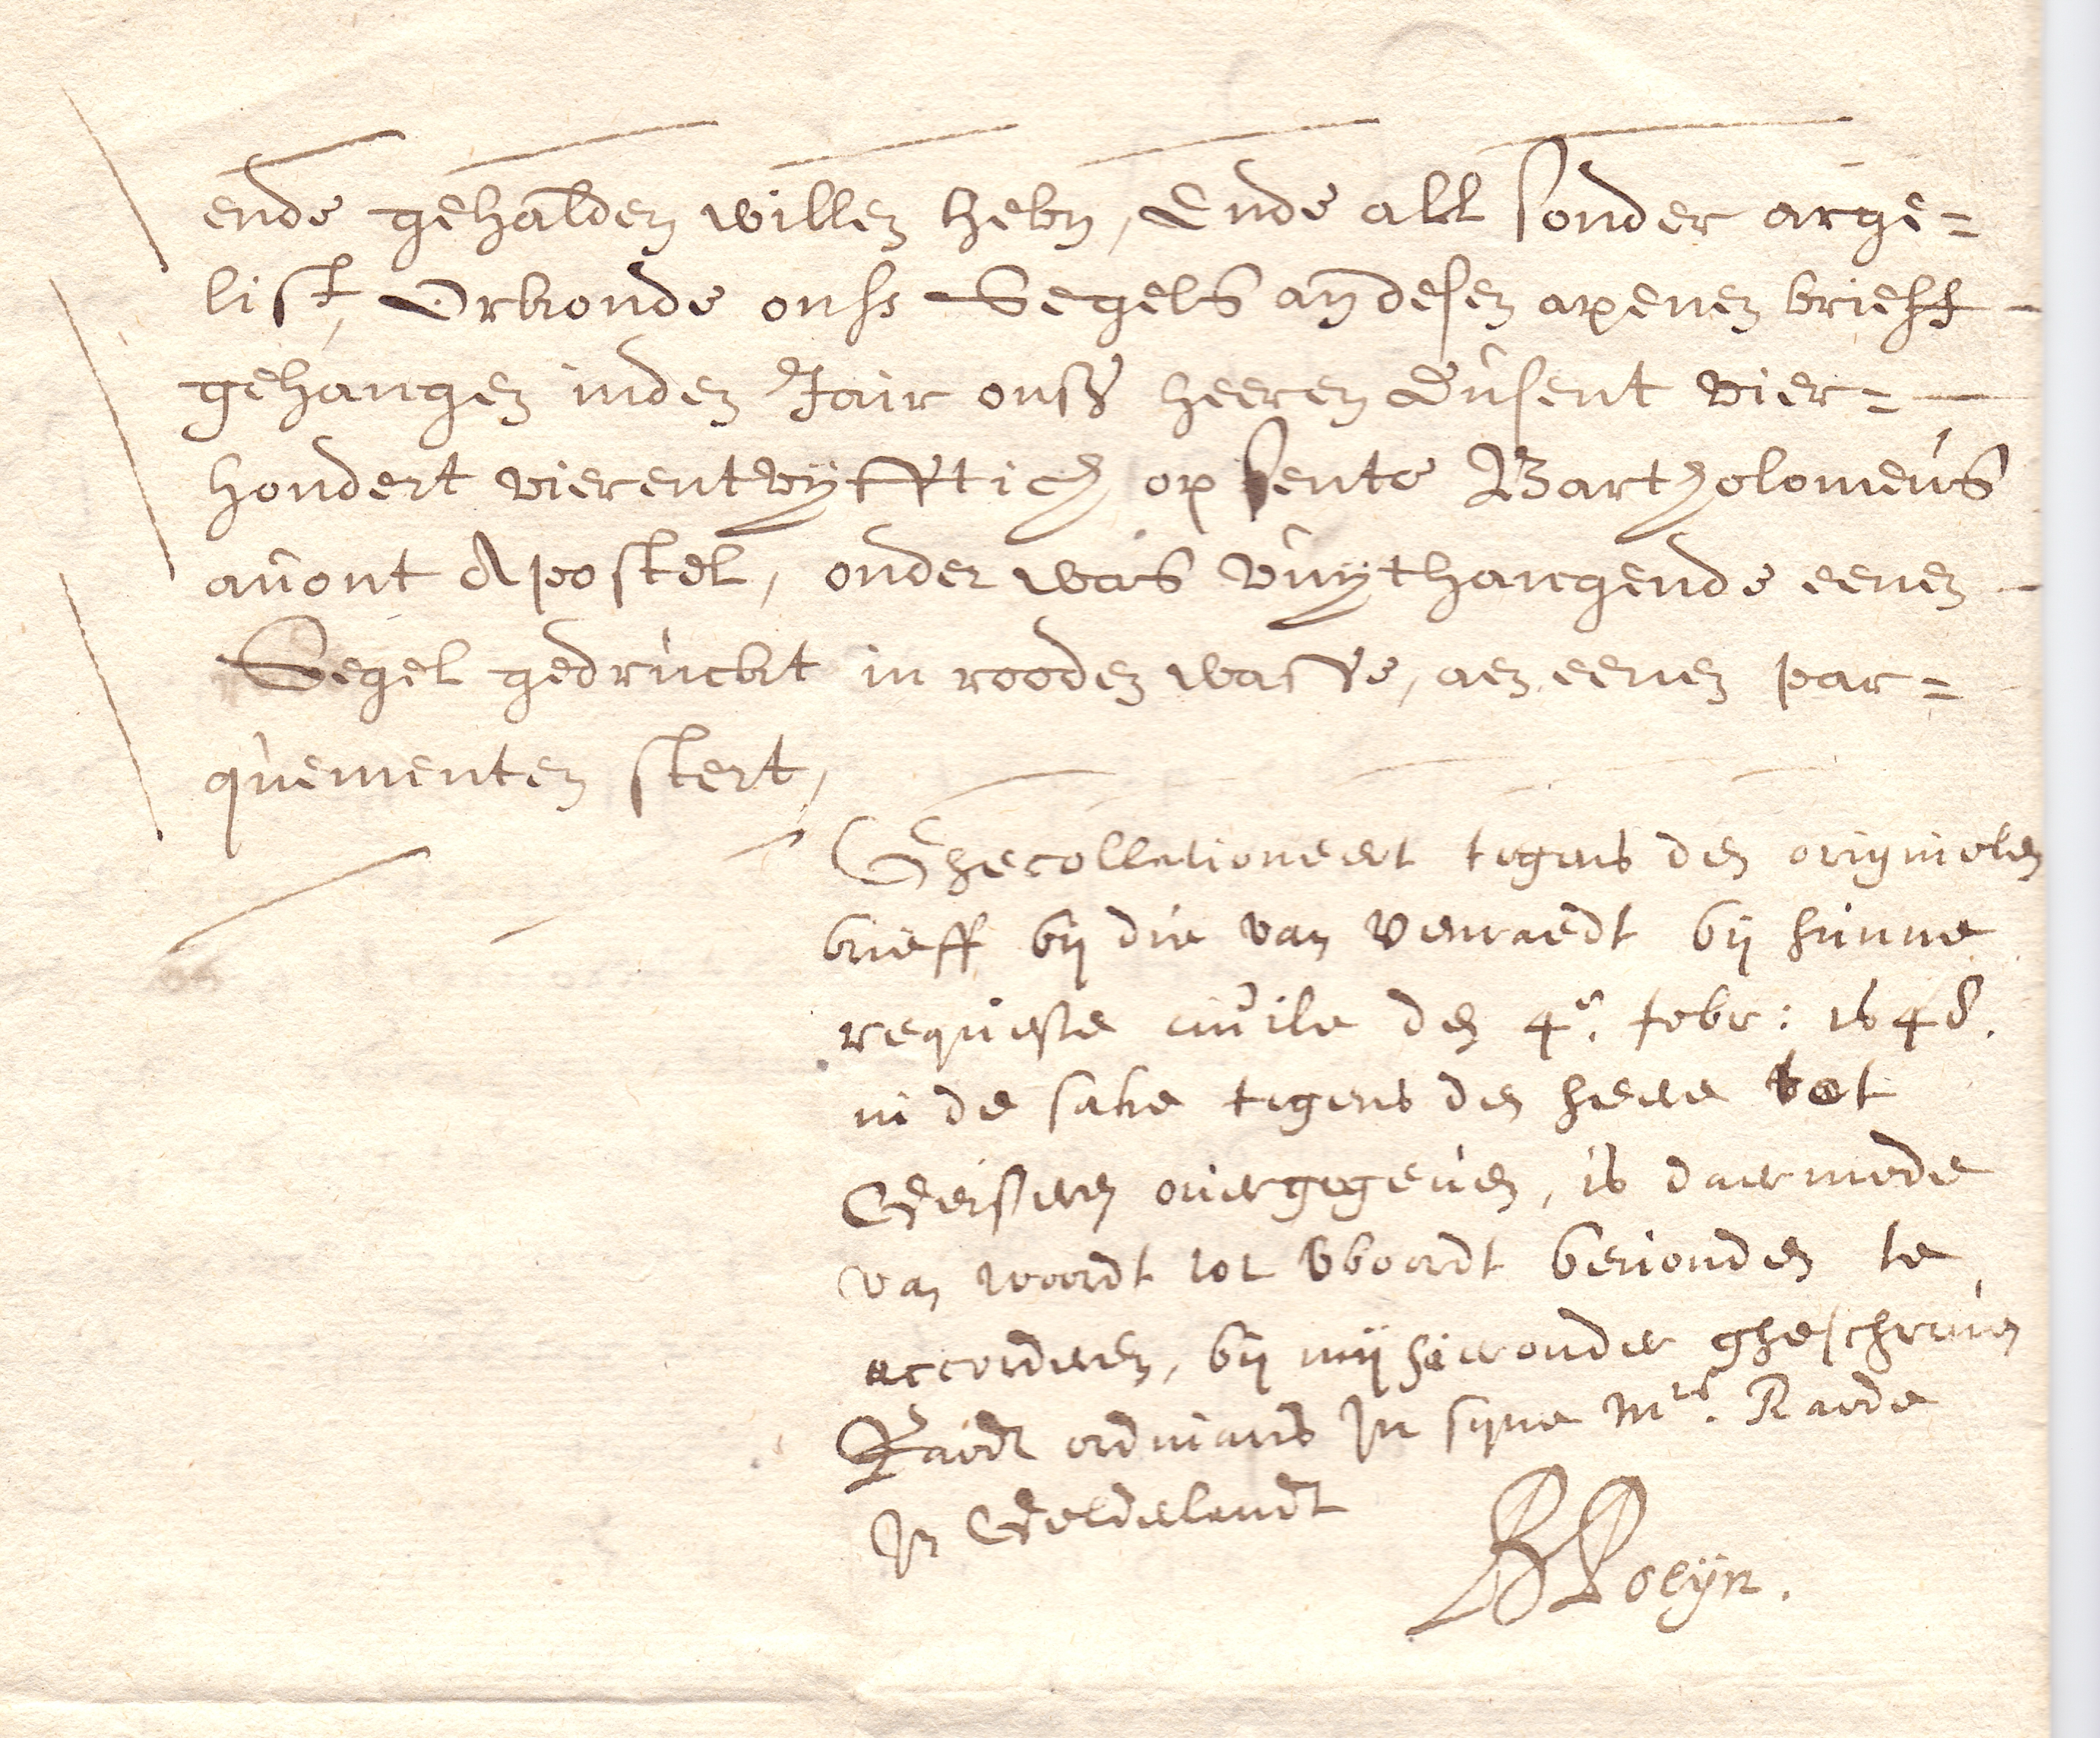 ende gehalden willen hebn, Ende all sonder arge=
list, Orkonde onss Segels an desen apenen brieff
gehangen inden Jair onss heeren Dusent vier=
hondert vierentvyfftich op Sente Bartholomeus
auont Apostel, onder was vuythangende eenen
Segel gedruckt in rooden wasse, aen eenen par=
quementen stert,
Ghecollationeert tegens den originelen
brieff bij die van Venraedt bij hunne
requeste ciuile den 4e. febr: 1648.
in de sake tegens den heere tot
Geisteren ouergegeuen, is daermede
van woordt tot woordt beuonden te
accorderen, bij mij hieronder gheschreuen
Raedt ordinaris in syne Mts. Raede
in Gelderlandt